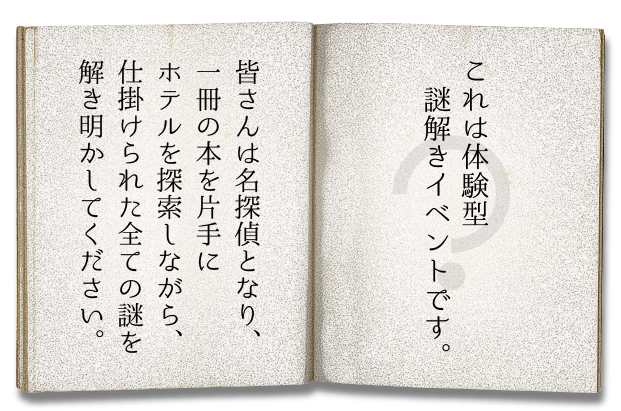 これは体験型
謎解きイベントです。
皆さんは名探偵となり、
一冊の本を片手に
ホテルを探索しながら、
仕掛けられた全ての謎を
解き明かしてください。